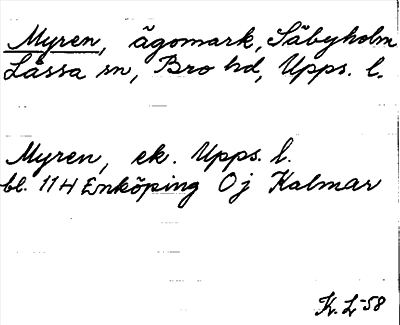 Myren, ägomark, Säbyholm
Låssa sn, Bro hd, Upps. l.
Myren, ek. Upps. l.
bl. 11 H Enköping Oj Kalmar
K. L -58